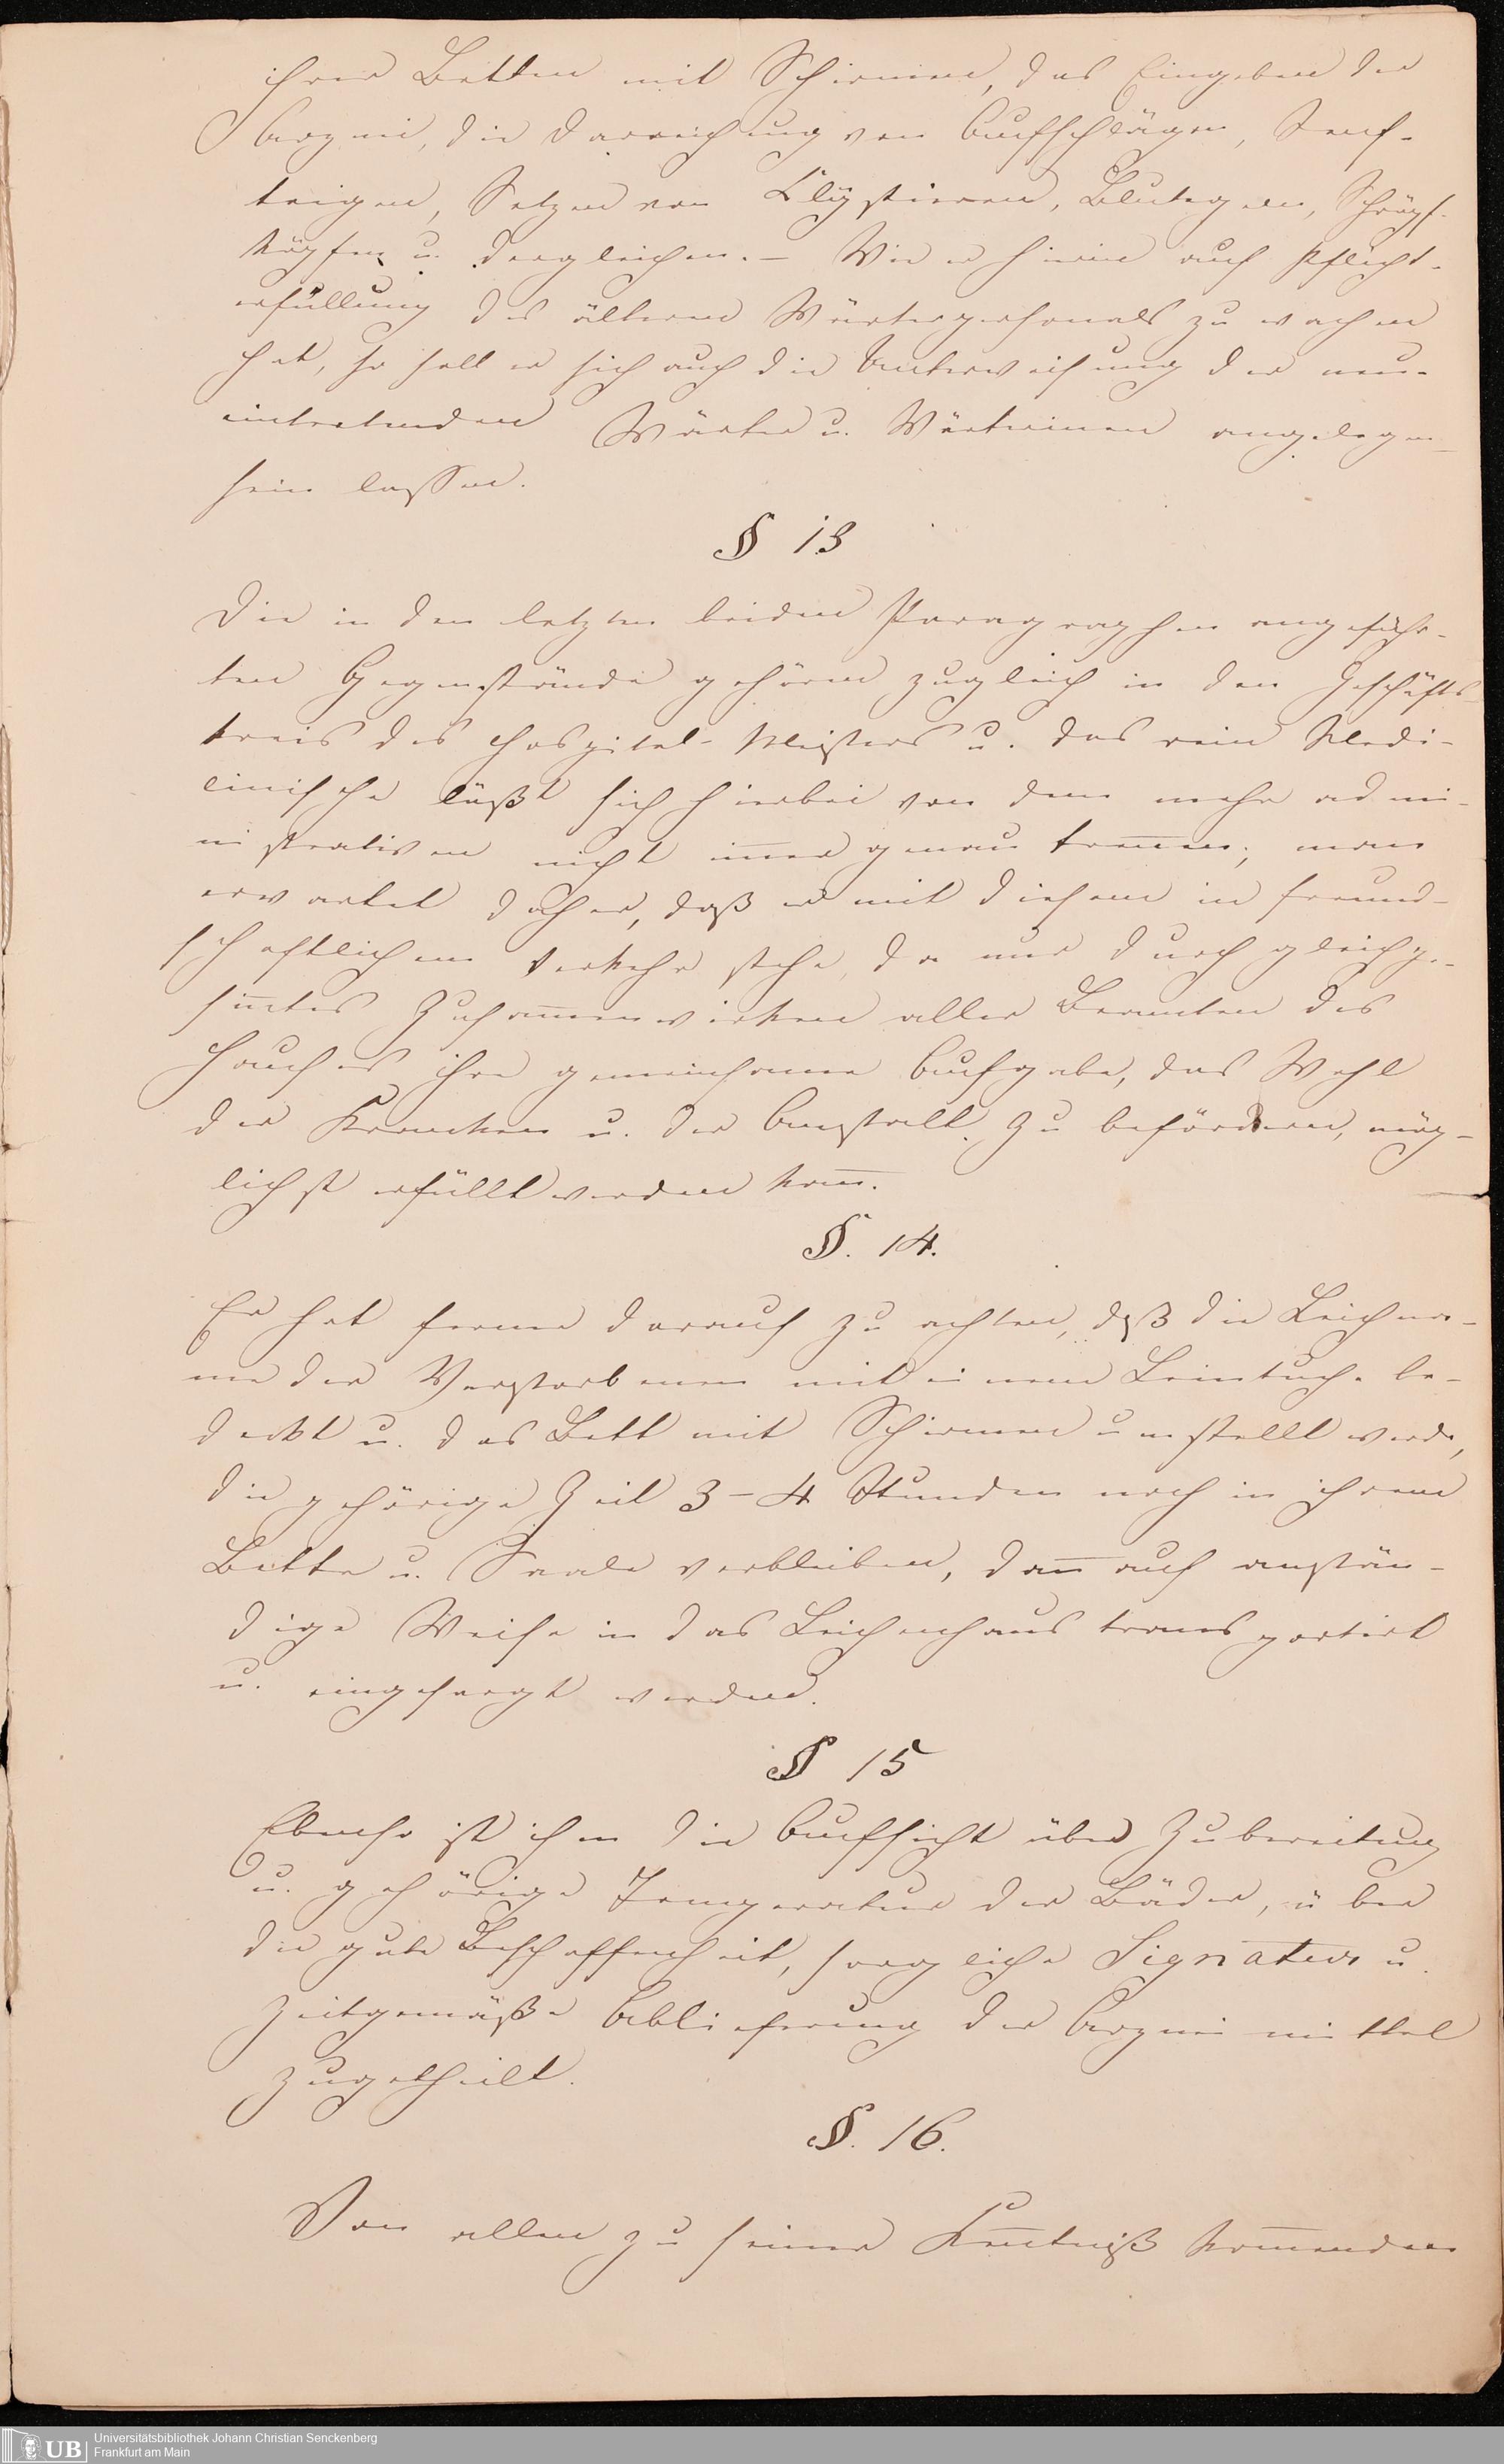 ihrer Betten mit Schirmen, das Eingeben der
Arznei, die Darreichung von Aufschlägen, Senf-
teigen, Setzen von Clystieren, Blutegeln, Schröpf-
köpfen u. dergleichen. – Wie er hierin auf Pflicht-
erfüllung des ältern Wärterpersonals zu wachen
hat, so soll er sich auch die Unterweisung der neu-
eintretenden Wärter u. Wärterinen angelegen
sein lassen.
§ 13
Die in den letzten beiden Paragraphen angeführ-
ten Gegenstände gehören zugleich in den Geschäfts-
kreis des Hospital-Meisters u. das rein Medi-
cinische läßt sich hierbei von dem mehr admi-
nistrativen nicht im̅er genau tren̅en; man
erwartet daher, daß er mit diesem in freund-
schaftlichem Verkehr stehe, da nur durch gleichge-
sin̅tes Zusam̅enwirken aller Beamten des
Hauses ihre gemeinsame Aufgabe, das Wohl
der Kranken u. der Anstalt zu befördern, mög-
lichst erfüllt werden kan̅.
§. 14.
Er hat ferner darauf zu achten, daß die Leichna-
me der Verstorbenen mit einem Leintuche be-
deckt u. das Bett mit Schirmen umstellt werde,
die gehörige Zeit 3–4 Stunden noch in ihrem
Bette u. Saale verbleiben, dan̅ auf anstän-
dige Weise in das Leichenhaus transportirt
u. eingesargt werden.
§ 15
Ebenso ist ihm die Aufsicht über Zubereitung
u. gehörige Temperatur der Bäder, über
die gute Beschaffenheit, sorgliche Signatur u.
zeitgemäße Ablieferung der Arzneimittel
zugetheilt.
§. 16.
Von allen zu seiner Ken̅tniß kom̅enden
Universitätsbibliothek Johann Christian Senckenberg
Frankfurt am Main